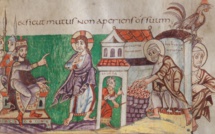 odicut mutus non aperiens os suum